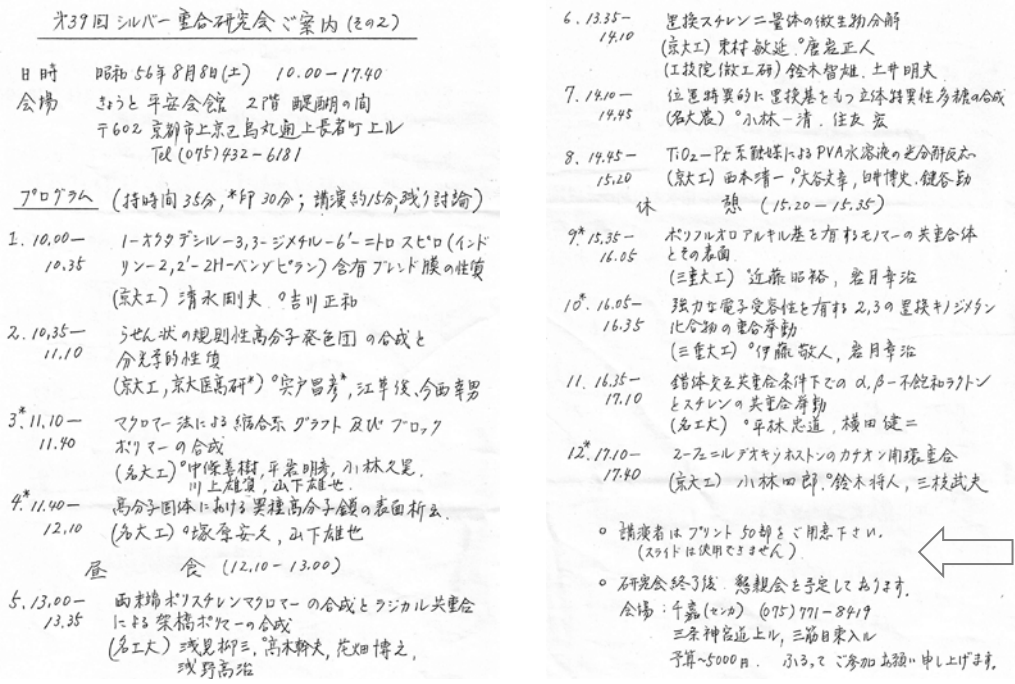 第39回 シルバー重合研究会ご案内 (その2)
日時 昭和56年8月8日(土) 10.00-17.40
会場 きょうと平安会館 2階 醍醐の間
〒602 京都市上京区烏丸通上長者町上ル
Tel (075) 432-6181
プログラム (持時間35分, *印30分; 講演約15分, 残り討論)
1. 10.00- 1-オクタデシル-3,3-ジメチル-6'-ニトロスピロ(インド
10.35 リン-2,2'-2H-ベンゾピラン) 含有ブレンド膜の性質
(京大工) 清水剛夫. °吉川正和
2. 10.35- らせん状の規則性高分子発色団の合成と
11.10 分光学的性質
(京大工, 京大医高研*) °宍戸昌彦*, 江草俊, 今西幸男
3*. 11.10- マクロマー法による縮合系グラフト及びブロック
11.40 ポリマーの合成
(名大工) °中條善樹, 平岩明彦, 小林久晃,
川上雄資, 山下雄也.
4*. 11.40- 高分子固体における異種高分子鎖の表面析出.
12.10 (名大工) °塚原安久, 山下雄也
昼 食 (12.10-13.00)
5. 13.00- 両末端ポリスチレンマクロマーの合成とラジカル共重合
13.35 による架橋ポリマーの合成
(名工大) 浅見柳三, °高木幹夫, 花畑博之,
浅野高治
6. 13.35- 置換スチレン二量体の微生物分解
14.10 (京大工) 東村敏延. °唐岩正人
(工技院微工研) 鈴木智雄. 土井明夫
7. 14.10- 位置特異的に置換基をもつ立体特異性多糖の合成
14.45 (名大農) °小林一清. 住友宏
8. 14.45- TiO2-Pt系触媒によるPVA水溶液の光分解反応
15.20 (京大工) 西本清一, °大谷文章, 臼井博史. 鍵谷勤
休 憩 (15.20-15.35)
9*. 15.35- ポリフルオロアルキル基を有するモノマーの共重合体
16.05 とその表面
(三重大工) °近藤昭裕, 岩月章治
10*. 16.05- 強力な電子受容性を有する2,3の置換キノジメタン
16.35 化合物の重合挙動
(三重大工) °伊藤敬人, 岩月章治
11. 16.35- 錯体交互共重合条件下での α,β-不飽和ラクトン
17.10 とスチレンの共重合挙動
(名工大) °平林忠道, 横田健二
12*. 17.10- 2-フェニルデオキソホストンのカチオン開環重合
17.40 (京大工) 小林四郎. °鈴木将人, 三枝武夫
° 講演者はプリント50部をご用意下さい.
(スライドは使用できません)
° 研究会終了後. 懇親会を予定しております.
会場: 千嘉(センカ) (075) 771-8419
三条神宮道上ル, 三筋目東入ル
予算~5000円. ふるってご参加お願い申し上げます.